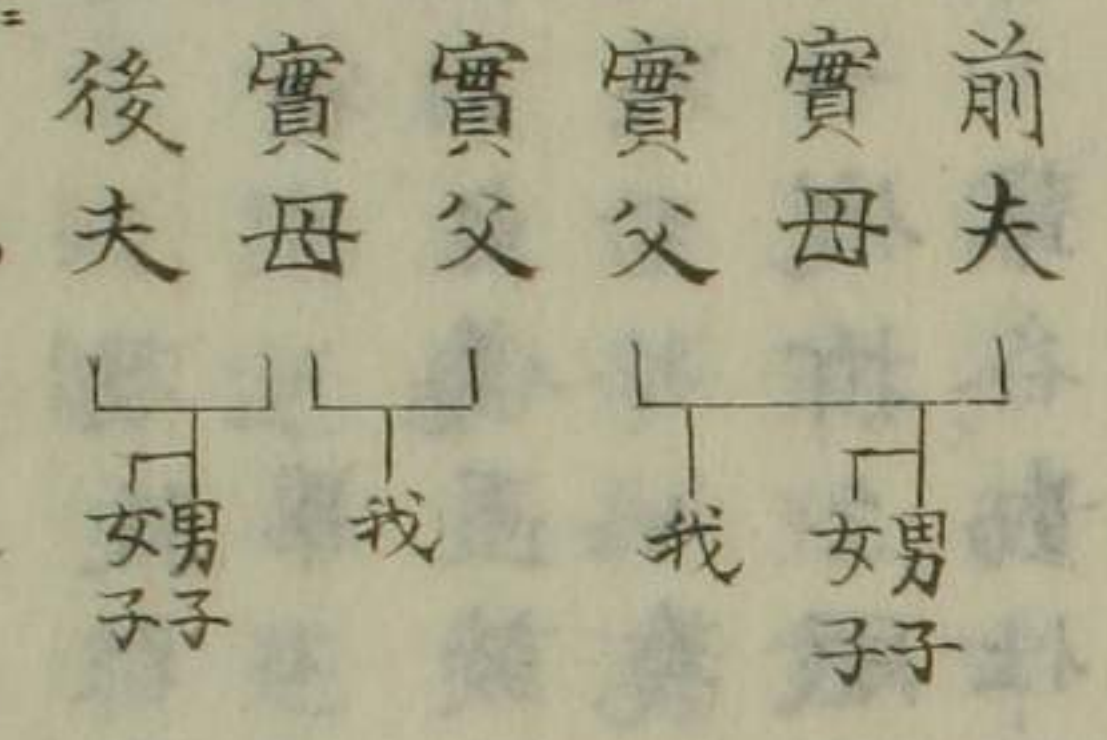 前夫
實母
實父
男子
女子
我
實父
實母
後夫
我
男子
女子